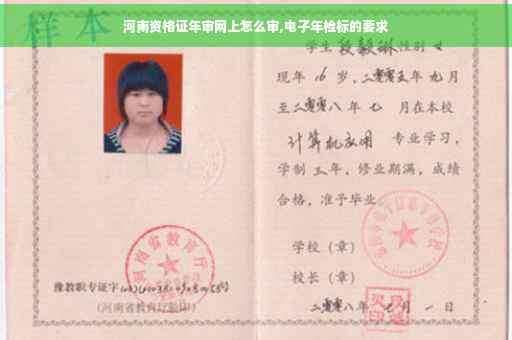 河南资格证年审网上怎么审,电子年检标的要求
样本
学生段毅琳性别女
现年16岁,二零零五年九月
至二零零八年七月在本校
计算机应用专业学习,
学制三年,修业期满,成绩
合格,准予毕业
学校(章)
校长(章)
二零零八年七月一日
河南省教育厅
豫教职专证字
(河南省教育厅验印)